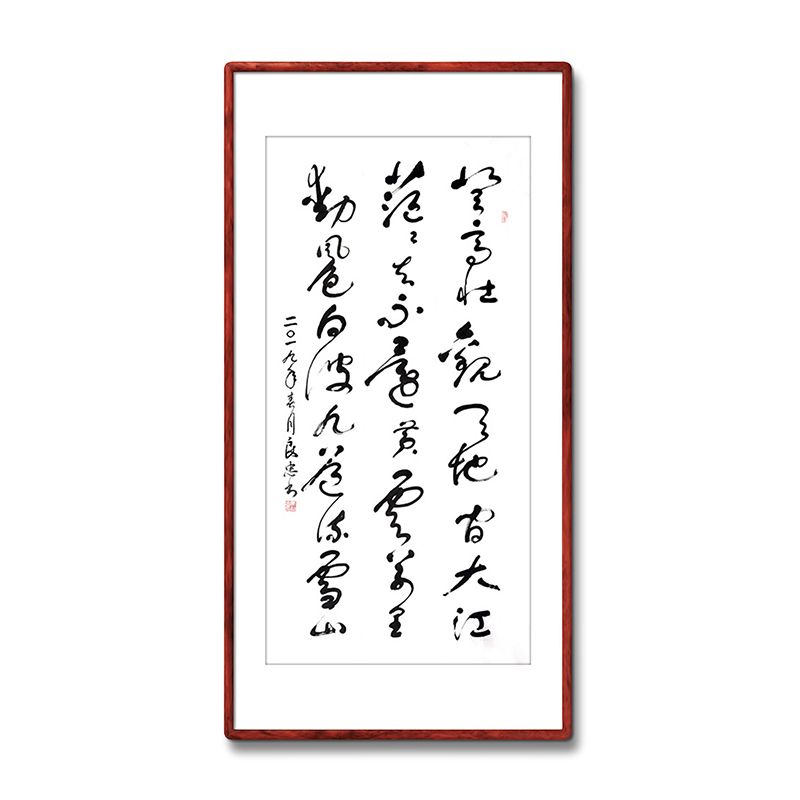 登高壮觀天地间大江
茫〻去不還黄雲萬里
動風色白波九道流雪山
二〇一九年春月良忠书